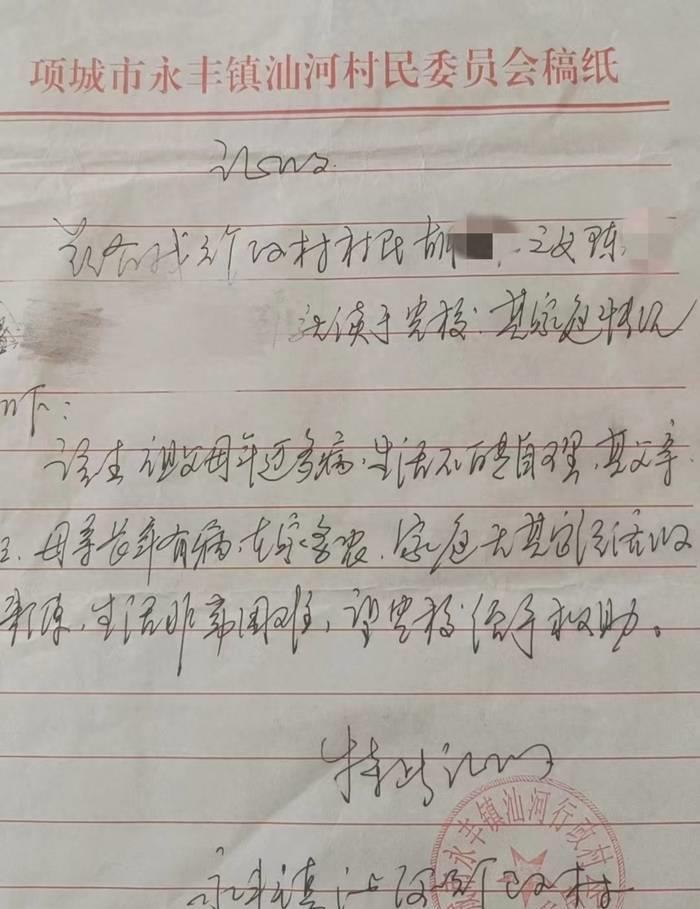 项城市永丰镇汕河村民委员会稿纸
证明
兹有我行政村村民胡 之女陈
就读于贵校.其家庭情况
如下:
该生祖父母年迈多病.生活不能自理,其父亲.
母亲长年有病,在家务农.家庭无其它经济收
来源,生活非常困难,望贵校给予救助。
特此证明
永丰镇汕河行政村
永丰镇汕河行政村